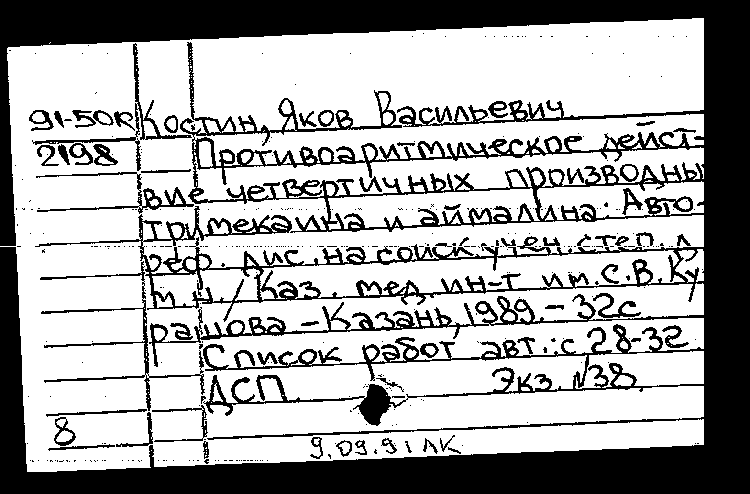 91-50к Костин, Яков Васильевич
2198 Противоаритмическое дейст-
вие четвертичных производны
тримекаина и аймалина: Авто-
реф. дис. на соиск. учен. степ. д
м. н. / Каз. мед. ин-т им. С. В. Ку
рашова – Казань, 1989. – 32с.
Список работ авт.: с 28-32
ДСП. Экз. №38.
8
9.09.91 ЛК